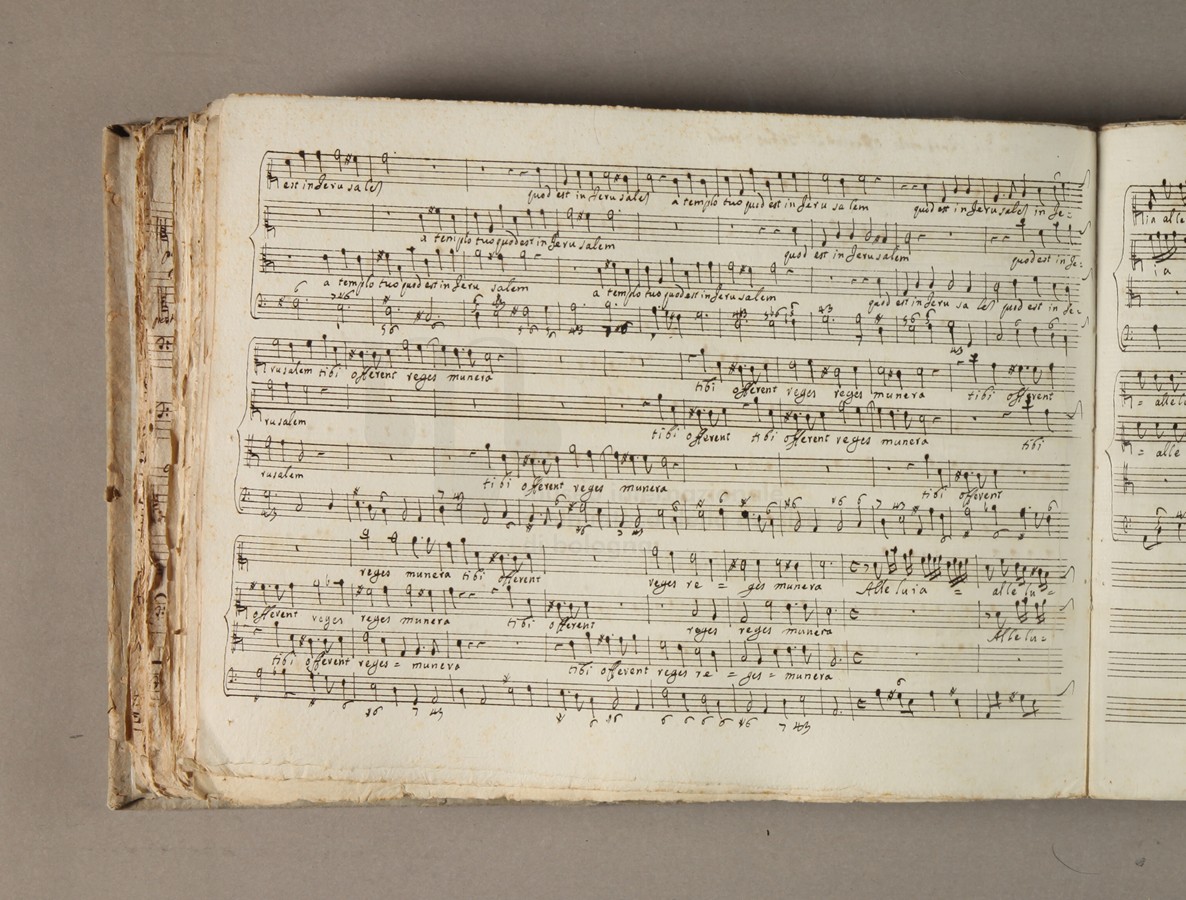 est in Jeru sale
quod est in Jerusale a templo tuo quod est in Jeru sa lem quod est in Jerusale in Je=
a templo tuo quod est in Jerusalem quod est in Jerusalem quod est in Je:
a templo tuo quod est in Jeru salem a templo tuo quod est in Jerusalem quod est in Jeru sa le quod est in Je=
rusalem tibi offerent reges munera tibi offerent reges reges munera tibi offerent
rusalem tibi offerent tibi offerent reges munera tibi
rusalem tibi offerent reges munera tibi offerent
reges munera tibi offerent reges re = ges munera Alle luia = alle lu =
offerent reges reges munera tibi offerent reges reges munera Alle lu=
tibi offerent reges = munera tibi offerent reges re = ges = munera
ia alle
ia
= allel
= alle